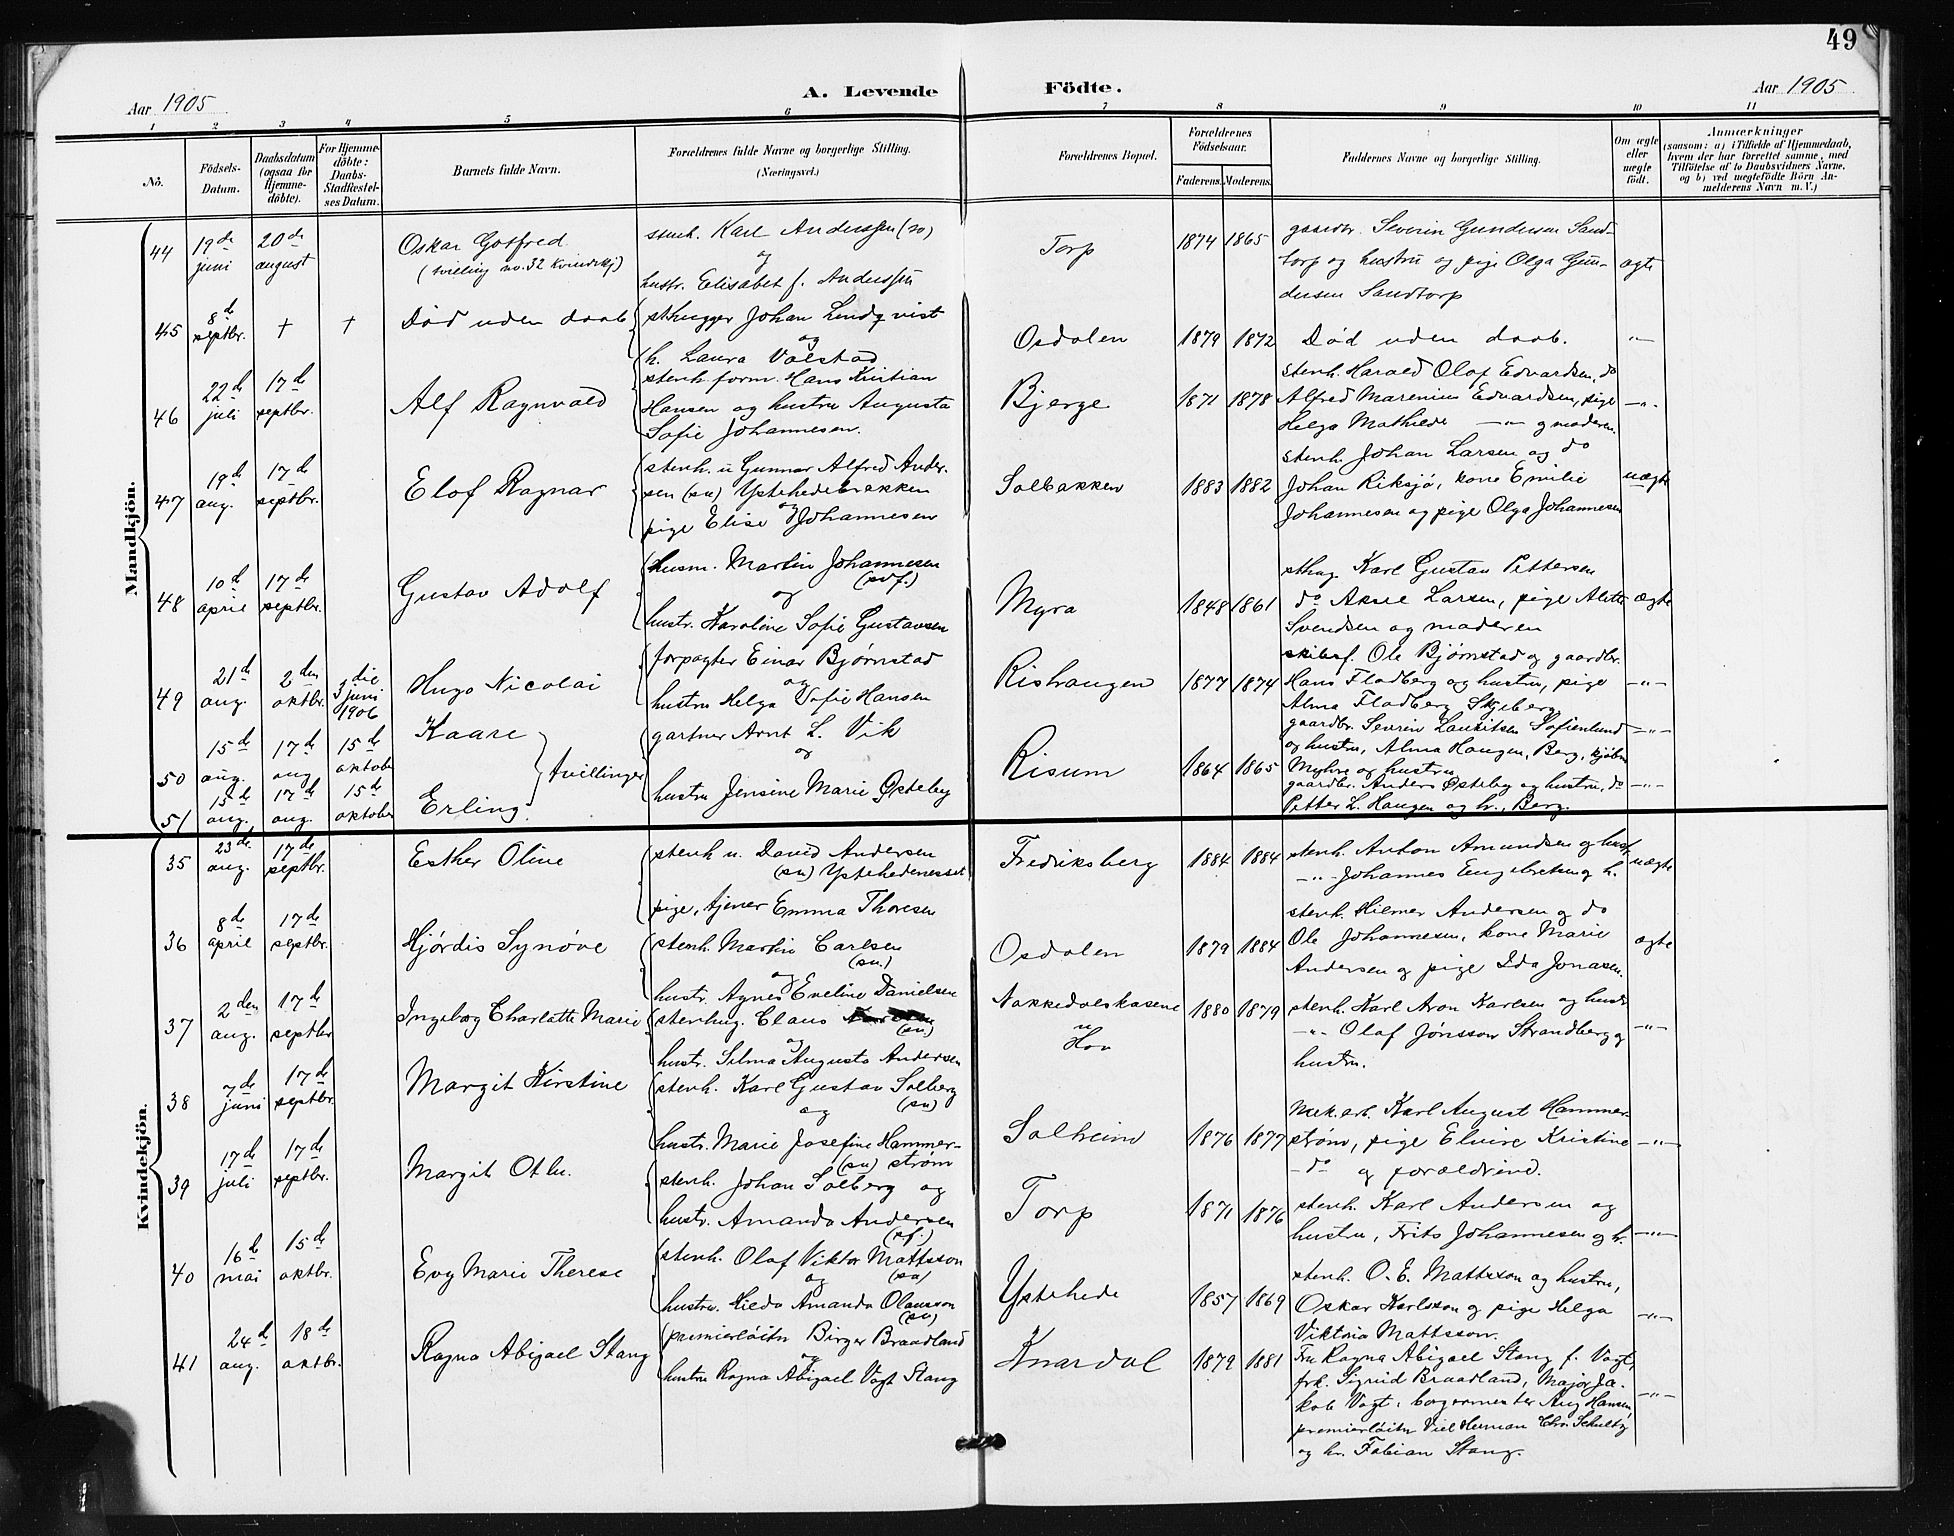 49
Aar 1905
A. Levende
Födte.
Aar 1905
1 2 3 4 5 6 7 8 9 10 11
No.
Födsels-Datum.
Daabsdatum (ogsaa for Hjemme-döbte).
For Hjemme-döbte: Daabs-Stadfæstel-ses Datum.
Barnets fulde Navn.
Forældrenes fulde Navne og borgerlige Stilling.
(Næringsvei.)
Forældrenes Bopæl.
Forældrenes Födselsaar.
Faderens. Moderens.
Faddernes Navne og borgerlige Stilling.
Om ægte eller uægte födt.
Anmærkninger
(saasom: a) i Tilfælde af Hjemmedaab,
hvem der har forrettet samme, med
Tilföielse af to Daabsvidners Navne,
og b) ved uægtefödte Börn An-
melderens Navn m. V.)
Mandkjön.
44
19de juni
20de august
Oskar Gotfred
(tvilling no. 32 kvindekj)
stenh. Karl Anderssen (so)
og
hustr. Elisabet f. Anderssen
Torp
1874 1865
gaardbr. Severin Gundersen Sand-
torp og hustru og pige Olga Gun-
dersen Sandtorp
ægte
45
8de septbr.
+
+
Död uden daab
sthugger Johan Lindqvist
og
h. Laura Valstad
Osdalen
1879 1872
Död uden daab.
-"-
46
22de juli
17de septbr.
Alf Ragnvald
stenh. form. Hans Kristian
Hansen og hustru Augusta
Sofie Johannesen.
Bjerge
1871 1878
stenh. Harald Olaf Edvardsen, do
Alfred Marenius Edvardsen, pige
Helga Mathilde -"- og moderen.
-"-
47
19de aug.
17de septbr.
Elof Ragnar
stenh. u Gunnar Alfred Ander-
sen (su) Ystehedebrækken
og
pige Elise Johannesen
Solbakken
1883 1882
stenh. Johan Larsen og do
Johan Riksjö, kone Emilie
Johannesen og pige Olga Johannesen
uægte
48
10de april
17de septbr.
Gustav Adolf
husm. Martin Johannesen
og
hustr. Karoline Sofie Gustavsen
Myra
1848 1861
sthug. Karl Gustav Pettersen
do Aksel Larsen, pige Alette
Svendsen og moderen
ægte
49
21de aug.
2den oktbr.
3die juni 1906
Hugo Nicolai
forpagter Einar Bjørnstad
og
hustru Helga Sofie Hansen
Rishaugen
1877 1874
skibsf. Ole Bjørnstad og gaardbr.
Hans Fladberg og hustru, pige
Alma Fladberg Skjeberg
-"-
50
15de aug.
17de aug
15de oktober
Kaare
tvillinger
gartner Arnt L. Vik
og
hustru Jensine Marie Østeby
Risum
1864 1865
gaardbr. Severin Lauritsen Sofienlund
og hustru, Alma Haugen, Berg, kjøbm
Myhre og hustru
-"-
51
15de aug.
17de aug.
15de oktober
Erling.
gaardbr. Anders Østeby og hustru, do
Petter L. Haugen og h., Berg.
-"-
Kvindekjön.
35
23de aug.
17de septbr.
Esther Oline
stenh u. David Andersen
(su) Ystehedenesset
pige, tjener Emma Thoresen
Fredriksberg
1884 1884
stenh. Anton Amundsen og hust.
-"- Johannes Engebretsen og h.
uægte
36
8de april
17de septbr.
Hjördis Synøve
stenh. Martin Carlsen
(su.)
og
hustr. Agnes Eveline Danielsen
Osdalen
1879 1884
stenh. Hilmer Andersen og do
Ole Johannesen, kone Marie
Andersen og pige Ida Jonasen.
ægte
37
2den aug.
17de septbr
Ingeborg Charlotte Marie
stenhug. Claus
(su)
og
hustr. Selma Augusta Andersen
Nakkedalskasene
u
Hov
1880 1879
stenh. Karl Aron Karlsen og hustr
-"- Olaf Jönsson Strandberg og
hustru.
-"-
38
7de juni
17de septbr.
Margit Kirstine
stenh. Karl Gustav Solberg
(su)
og
hustr. Marie Josefine Hammer-
(su) strøm
Solheim
1876 1877
Mek. arb. Karl August Hammer-
strøm, pige Elvire Kristine
-do og forældrene.
-"-
39
17de juli
17de septbr.
Margit Otlu.
stenh. Johan Solberg og
hustr. Amanda Andersen
(sf.)
Torp
1871 1876
stenh. Karl Andersen og
hustru, Frits Johannesen og h.
-"-
40
16de mai
15de oktbr.
Evy Marie Therese
stenh. Olaf Viktor Mattsson
(su)
og
hustru Hilda Amanda Olausson
(su)
Ystehede
1857 1869
stenh. O. E. Mattsson og hustru,
Oskar Karlsson og pige Helga
Viktoria Mattsson.
-"-
41
24de aug.
18de oktbr.
Ragna Abigael Stang
premierløitn Birger Braadland
og
hustru Ragna Abigael Vogt Stang
Knardal
1879 1881
Fru Ragna Abigael Stang f. Vogt,
frk. Sigrid Braadland, Major Ja-
kob Vogt, borgermester Aug Hansen,
premierløitn Viel Herman Chr. Schultz
og hr. Fabian Stang.
-"-